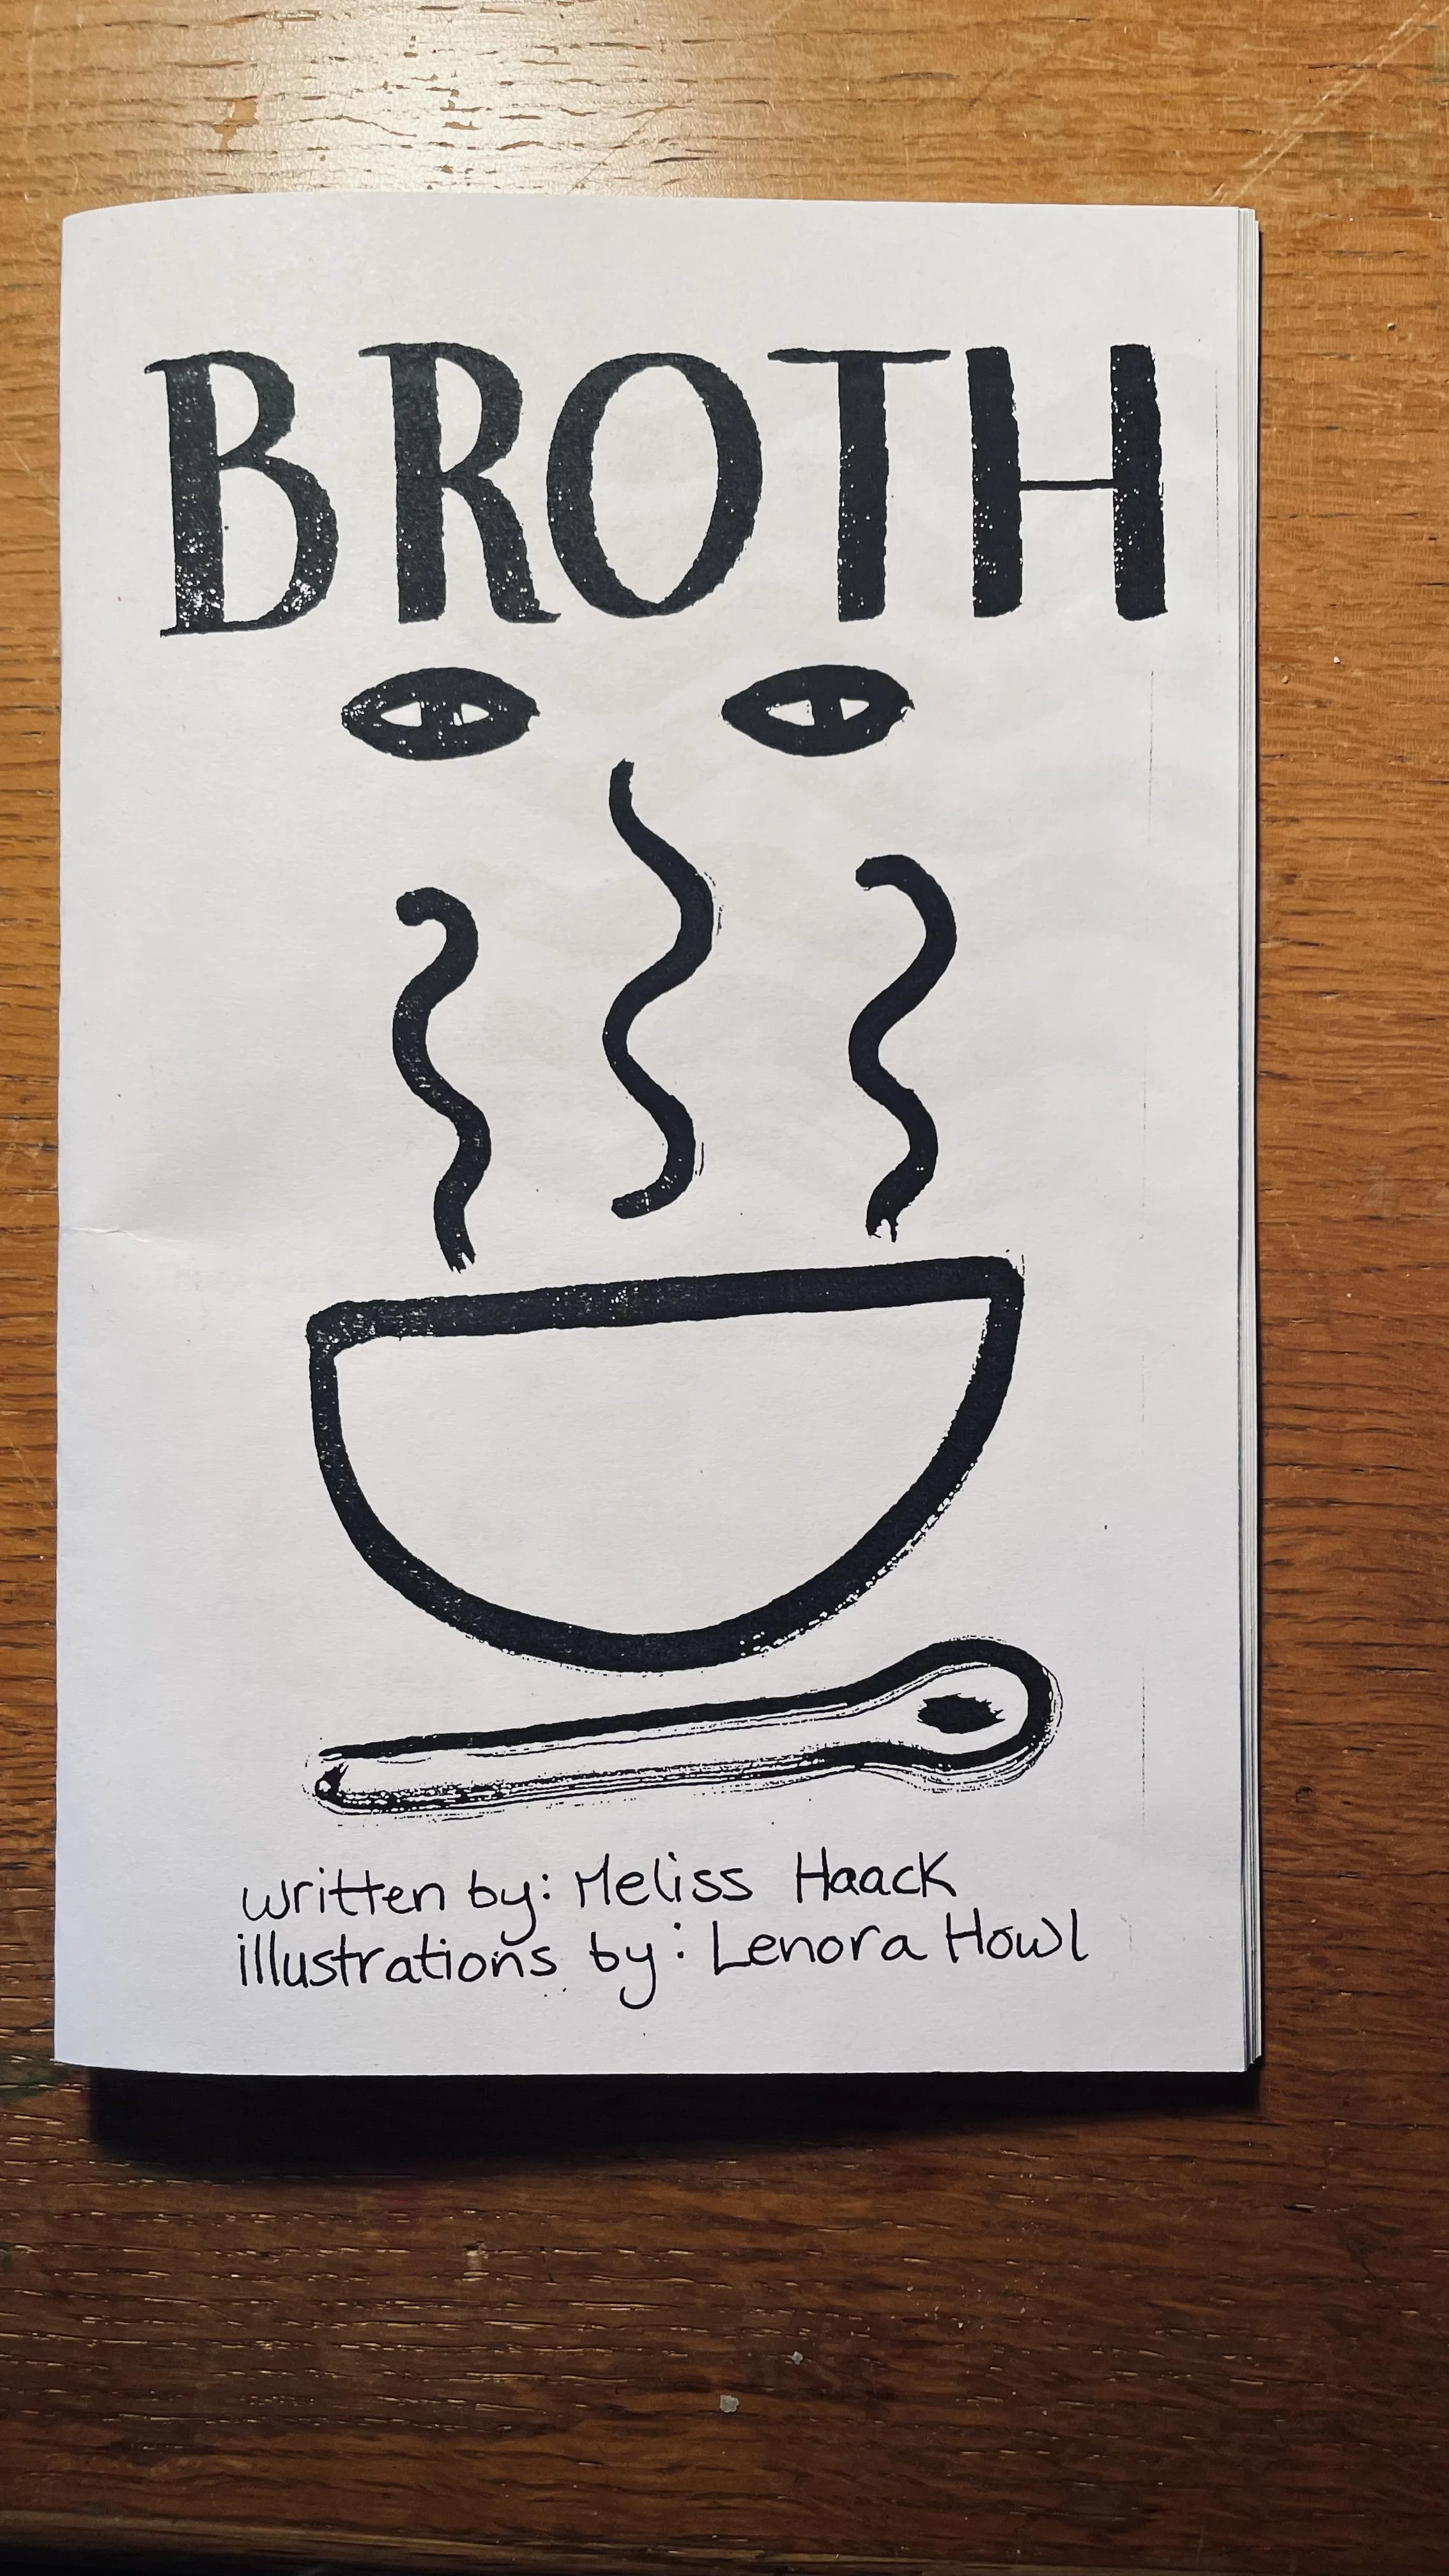 BROTH
written by: Meliss Haack
illustrations by: Lenora Howl